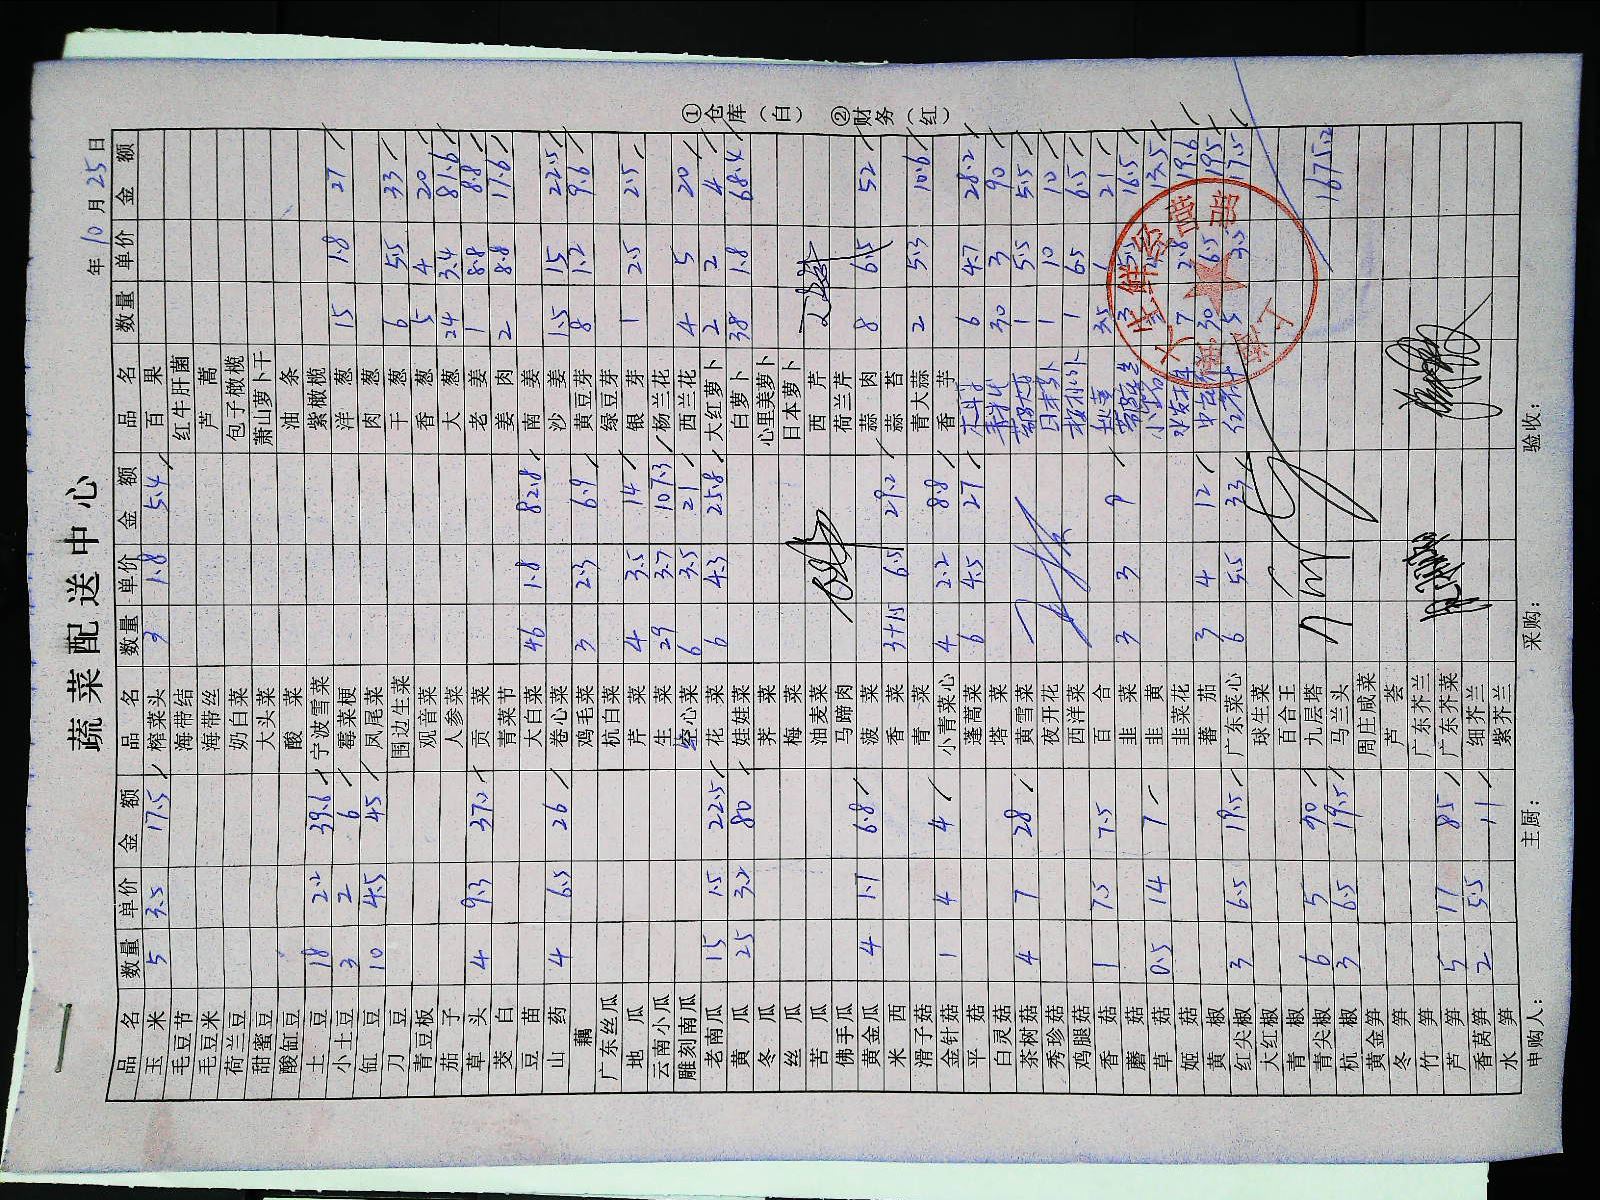 蔬菜配送中心
年 10 月 25 日
品名 数量 单价 金额 品名 数量 单价 金额 品名 数量 单价 金额
玉米 5 3.5 17.5 榨菜头 3 1.8 5.4 百果
毛豆节 海带结 红牛肝菌
毛豆米 海带丝 芦蒿
荷兰豆 奶白菜 包子橄榄
甜蜜豆 大头菜 萧山萝卜干
酸缸豆 酸菜 油条
土豆 18 2.2 39.6 宁波雪菜 紫橄榄
小土豆 3 2 6 霉菜梗 洋葱 15 1.8 27
缸豆 10 4.5 45 凤尾菜 肉葱
刀豆 围边生菜 干葱 6 5.5 33
青豆板 观音菜 香葱 5 4 20
茄子 人参菜 大葱 24 3.4 81.6
草头 4 9.3 37.2 贡菜 老姜 1 8.8 8.8
茭白 青菜节 姜肉 2 8.8 17.6
豆苗 大白菜 46 1.8 82.8 南姜
山药 4 6.5 26 卷心菜 沙姜 1.5 15 22.5
藕 鸡毛菜 3 2.3 6.9 黄豆芽 8 1.2 9.6
广东丝瓜 杭白菜 绿豆芽
地瓜 芹菜 4 3.5 14 银芽 1 2.5 2.5
云南小瓜 生菜 29 3.7 107.3 杨兰花
雕刻南瓜 空心菜 6 3.5 21 西兰花 4 5 20
老南瓜 15 1.5 22.5 花菜 6 4.3 25.8 大红萝卜 2 2 4
黄瓜 25 3.2 80 娃娃菜 白萝卜 38 1.8 68.4
冬瓜 荠菜 心里美萝卜
丝瓜 梅菜 日本萝卜
苦瓜 油麦菜 西芹
佛手瓜 马蹄肉 荷兰芹
黄金瓜 4 1.7 6.8 菠菜 蒜肉 8 6.5 52
米西 香菜 3+1.5 6.5 29.2 蒜苔
滑子菇 青菜 青大蒜 2 5.3 10.6
金针菇 1 4 4 小青菜心 4 2.2 8.8 香芋
平菇 蓬蒿菜 6 4.5 27 6 4.7 28.2
白灵菇 塔菜 30 3 90
茶树菇 4 7 28 黄雪菜 1 5.5 5.5
秀珍菇 夜开花 1 10 10
鸡腿菇 西洋菜 1 6.5 6.5
香菇 1 7.5 7.5 百合 3.5 6 21
蘑菇 韭菜 3 3 9 3 5.5 16.5
草菇 0.5 14 7 韭黄 13.5
姬菇 韭菜花 水发木耳 7 2.8 19.6
黄椒 蕃茄 3 4 12 30 6.5 195
红尖椒 3 6.5 19.5 广东菜心 6 5.5 33 5 3.5 17.5
大红椒 球生菜
青椒 百合王
青尖椒 6 5 30 九层塔 1675.2
杭椒 3 6.5 19.5 马兰头
黄金笋 周庄咸菜
冬笋 芦荟
竹笋 广东芥兰
芦笋 5 17 85 广东芥菜
香莴笋 2 5.5 11 细芥兰
水笋 紫芥兰
申购人： 主厨： 采购： 验收：
①仓库（白） ②财务（红）